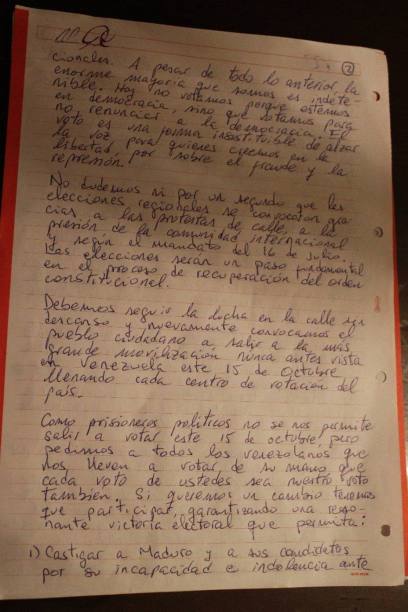 2
cionales. A pesar de todo lo anterior, la
enorme mayoría que somos es indete-
nible. Hoy no votamos porque estemos
en democracia, sino que votamos para
no renunciar a la democracia. El
voto es una forma insustituible de alzar
la voz para quienes creemos en la
libertad por sobre el fraude y la
represión.
No dudemos ni por un segundo que las
elecciones regionales se convocaron gra-
cias a las protestas de calle, a la
presión de la comunidad internacional
y según el mandato del 16 de Julio.
Las elecciones serán un paso fundamental
en el proceso de recuperación del orden
constitucional.
Debemos seguir la lucha en la calle sin
descanso y nuevamente convocamos al
pueblo ciudadano a salir a la más
grande movilización nunca antes vista
en Venezuela este 15 de Octubre
llenando cada centro de votación del
país.
Como prisioneros políticos no se nos permite
salir a votar este 15 de octubre, pero
pedimos a todos los venezolanos que
nos lleven a votar de su mano, que
cada voto de ustedes sea nuestro voto
también. Si queremos un cambio tenemos
que participar, garantizando una reso-
nante victoria electoral que permita:
1) Castigar a Maduro y a sus candidatos
por su incapacidad e indolencia ante